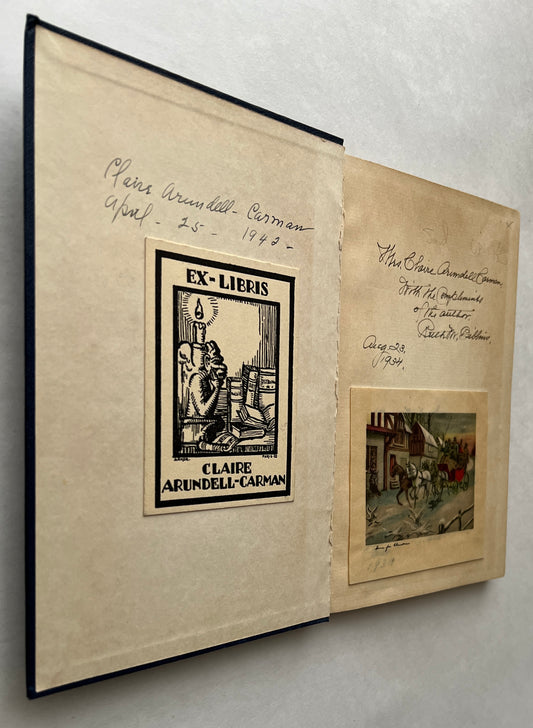 Claire Arundell-Carman
April - 25 - 1942 -
EX-LIBRIS
CLAIRE
ARUNDELL-CARMAN
Mrs. Claire Arundell Carman
With the Compliments
of the author,
Aug. 23,
1934.